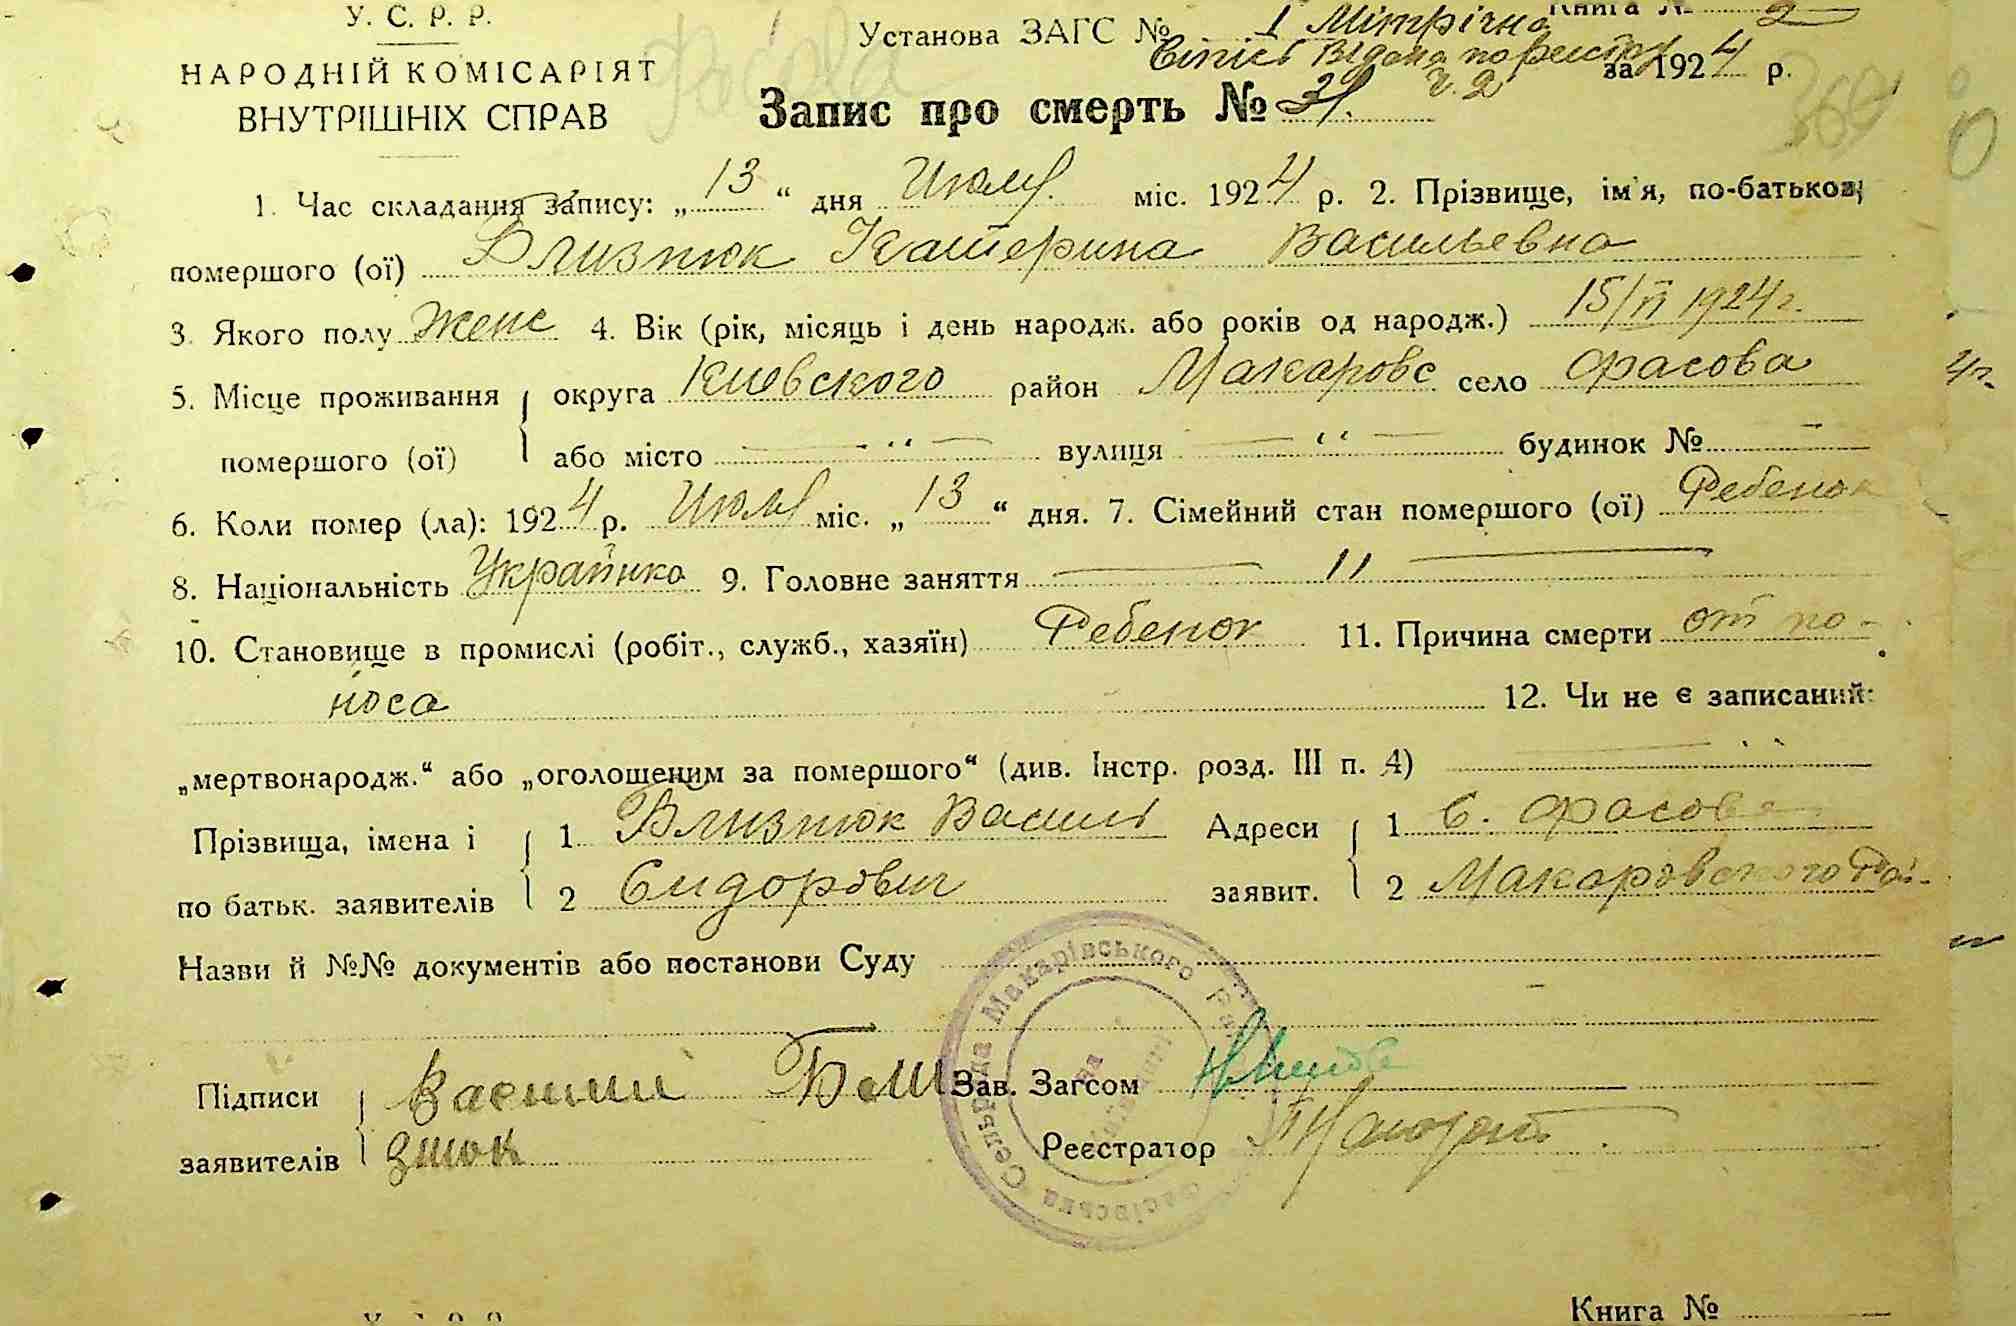 У. С. Р. Р.
НАРОДНІЙ КОМІСАРІЯТ
ВНУТРІШНІХ СПРАВ
Фасова
Установа ЗАГС № 1 Мітрічна Книга № 2
відана по реєстру за 1924 р.
ч. 2
Запис про смерть № 31.
1. Час складання запису: „13“ дня Июля міс. 1924 р. 2. Прізвище, ім'я, по-батькові
помершого (ої) Близнюк Катерина Васильевна
3. Якого полу Женс 4. Вік (рік, місяць і день народж. або років од народж.) 15/VI 1924 г.
5. Місце проживання помершого (ої) { округа Киевского район Макаровс село Фасова
або місто — “ — вулиця — “ — будинок № —
6. Коли помер (ла): 1924 р. Июля міс. „13“ дня. 7. Сімейний стан помершого (ої) Ребенок
8. Національність Украинка 9. Головне заняття — 11 —
10. Становище в промислі (робіт., служб., хазяїн) Ребенок 11. Причина смерти от по-
носа 12. Чи не є записаний:
„мертвонародж.“ або „оголошеним за помершого“ (див. Інстр. розд. III п. 4) — “
Прізвища, імена і { 1 Близнюк Василь Адреси { 1 С. Фасова
по батьк. заявителів 2 Сидорович заявит. 2 Макаровского Рай-
Назви й №№ документів або постанови Суду
Підписи { Васили Бли Зав. Загсом
заявителів знюк Реєстратор
Сельрада Макарівського
Книга №